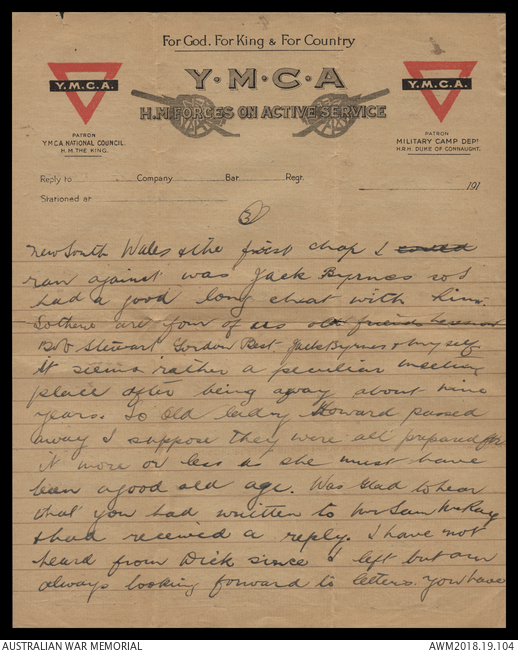 For God. For King & For Country
Y.M.C.A.
Y.M.C.A.
Y·M·C·A
H.M. FORCES ON ACTIVE SERVICE
PATRON
Y.M.C.A. NATIONAL COUNCIL.
H.M. THE KING.
PATRON
MILITARY CAMP DEPT
H.R.H. DUKE OF CONNAUGHT.
Reply to Company Bat Regt.
Stationed at
191
3
New South Wales & the first chap I could
ran against was Jack Byrnes so I
had a good long cheat with him.
So there are four of us old friends here now
Bob Stewart Gordon Best. Jack Byrnes & myself
it siems rather a peculiar meeting
place after being away about nine
years. So Old Lady Howard passed
away I suppose they were all prepared for
it more or less as she must have
been a good old age. Was Glad to hear
that you had written to Mr Sam McKay
& had received a reply. I have not
heard from Dick since I left but am
always looking forward to letters. You have
AUSTRALIAN WAR MEMORIAL
AWM2018.19.104